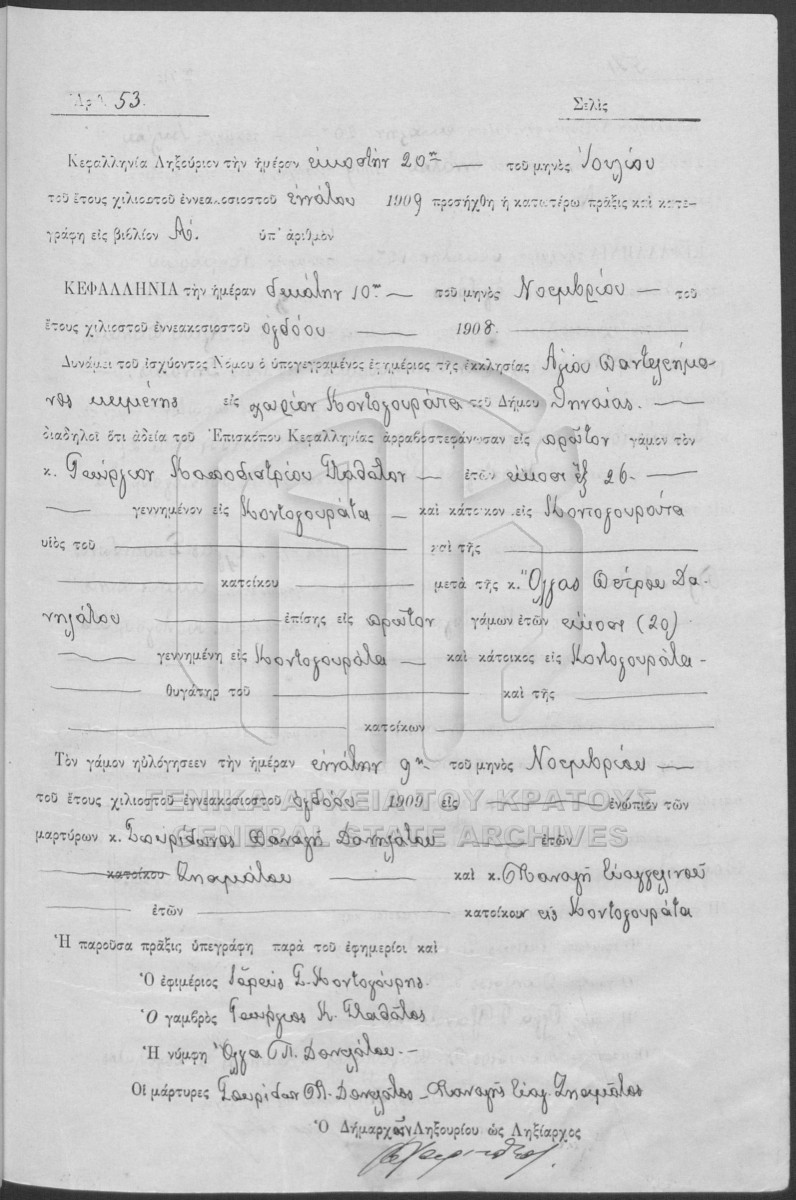 Ἀριθ. 53. Σελὶς
Κεφαλληνία Ληξούριον τὴν ἡμέραν εἰκοστὴν 20ην τοῦ μηνὸς Ἰουλίου
τοῦ ἔτους χιλιοστοῦ ἐννεακοσιοστοῦ ἐννάτου 1909 προσήχθη ἡ κατωτέρω πρᾶξις καὶ κατε-
γράφη εἰς βιβλίον Α΄. ὑπ' ἀριθμὸν
ΚΕΦΑΛΛΗΝΙΑ τὴν ἡμέραν δεκάτην 10ην τοῦ μηνὸς Νοεμβρίου τοῦ
ἔτους χιλιοστοῦ ἐννεακοσιοστοῦ ὀγδόου 1908.
Δυνάμει τοῦ ἰσχύοντος Νόμου ὁ ὑπογεγραμένος ἐφημέριος τῆς ἐκκλησίας Ἁγίου Παντελεήμο-
νος κειμένης εἰς χωρίον Κοντογουράτα τοῦ Δήμου Θηναίας.
διαδηλοῖ ὅτι ἀδεία τοῦ Ἐπισκόπου Κεφαλληνίας ἀρραβοστεφάνωσαν εἰς πρῶτον γάμον τὸν
κ. Γεώργιον Καποδιστρίου ἐτῶν εἴκοσι ἓξ 26
γεννημένον εἰς Κοντογουράτα καὶ κάτοικον εἰς Κοντογουράτα
υἱὸς τοῦ καὶ τῆς
κατοίκου μετὰ τῆς κ. Ὄλγας Πέτρου Δα-
νηλάτου ἐπίσης εἰς πρῶτον γάμων ἐτῶν εἴκοσι (20)
γεννημένη εἰς Κοντογουράτα καὶ κάτοικος εἰς Κοντογουράτα
θυγάτηρ τοῦ καὶ τῆς
κατοίκων
Τὸν γάμον ηὐλόγησεεν τὴν ἡμέραν ἐννάτην 9ην τοῦ μηνὸς Νοεμβρίου
τοῦ ἔτους χιλιοστοῦ ἐννεακοσιοστοῦ ὀγδόου 1909 εἰς ἐνώπιον τῶν
μαρτύρων κ. Σπυρίδωνος Παναγῆ Δανηλάτου ἐτῶν
κατοίκου καὶ κ. Παναγῆ Εὐαγγελινοῦ
ἐτῶν κατοίκων εἰς Κοντογουράτα
Ἡ παροῦσα πρᾶξις ὑπεγράφη παρὰ τοῦ ἐφημερίοι καὶ
Ὁ ἐφιμέριος Ἱερεὺς Σ. Κοντογούρης.
Ὁ γαμβρὸς Γεώργιος Κ.
Ἡ νύμφη Ὄλγα Π. Δανηλάτου.
Οἱ μάρτυρες Σπυρίδων Π. Δανηλάτος Παναγῆς Εὐαγ.
Ὁ Δήμαρχος Ληξουρίου ὡς Ληξίαρχος
ΓΕΝΙΚΑ ΑΡΧΕΙΑ ΤΟΥ ΚΡΑΤΟΥΣ
GENERAL STATE ARCHIVES